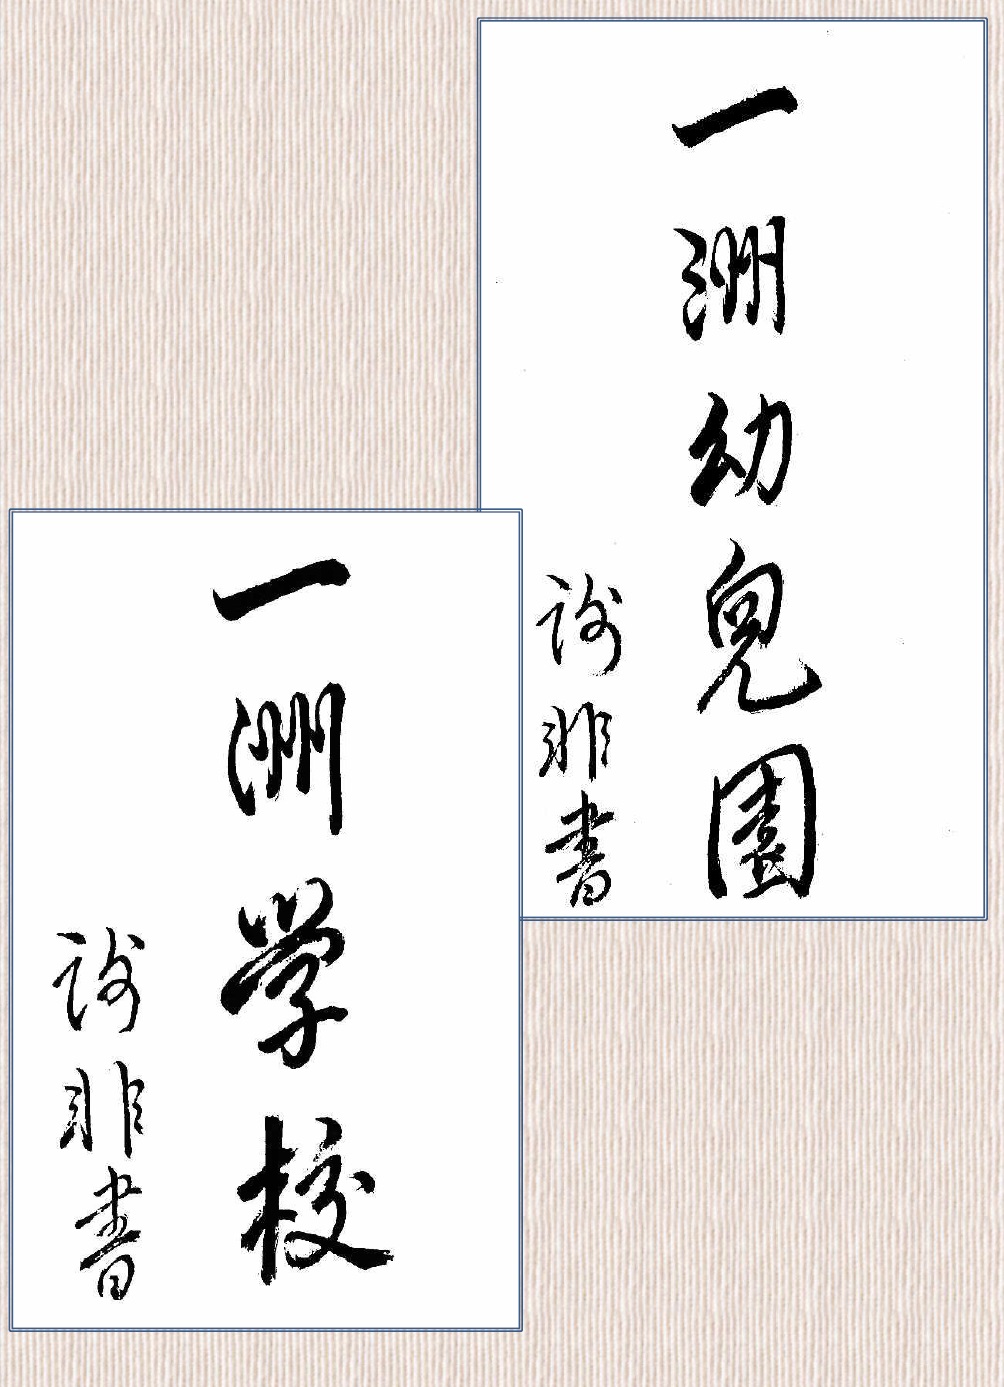 一洲幼兒園
谢非書
一洲學校
谢非書